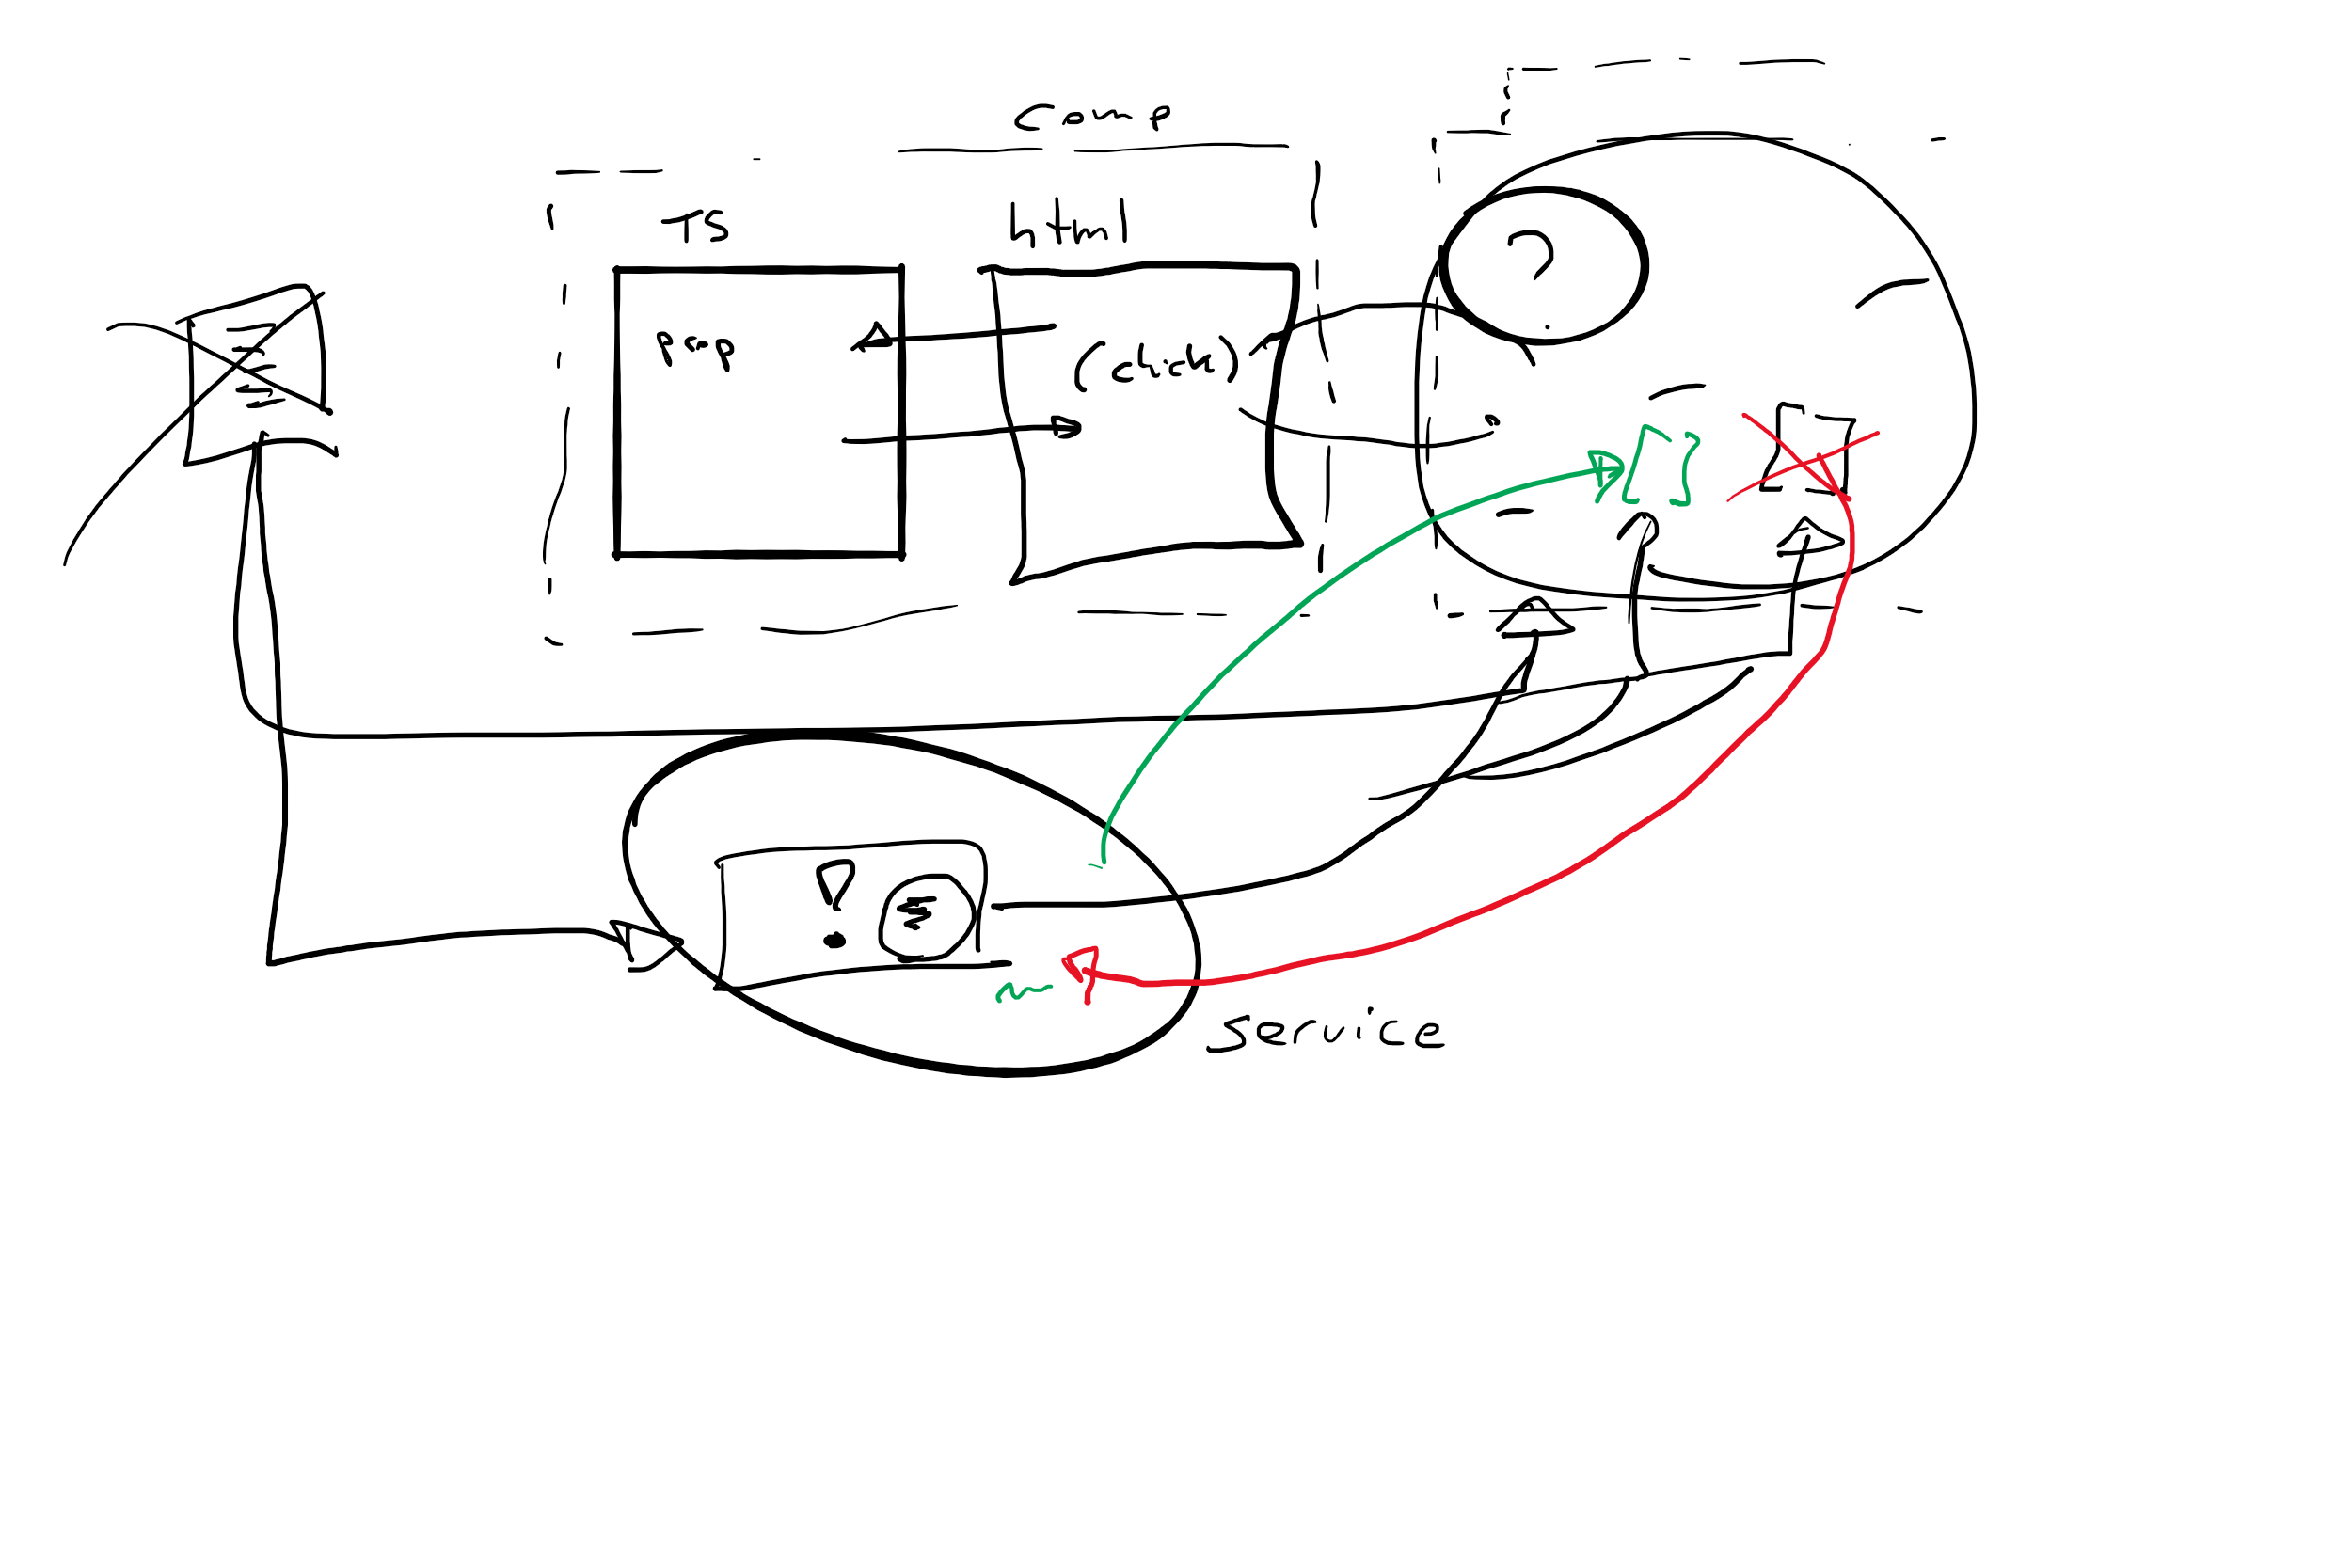 Comp
TS
html
?
App
(click)
[ ]
[ ]
!
service